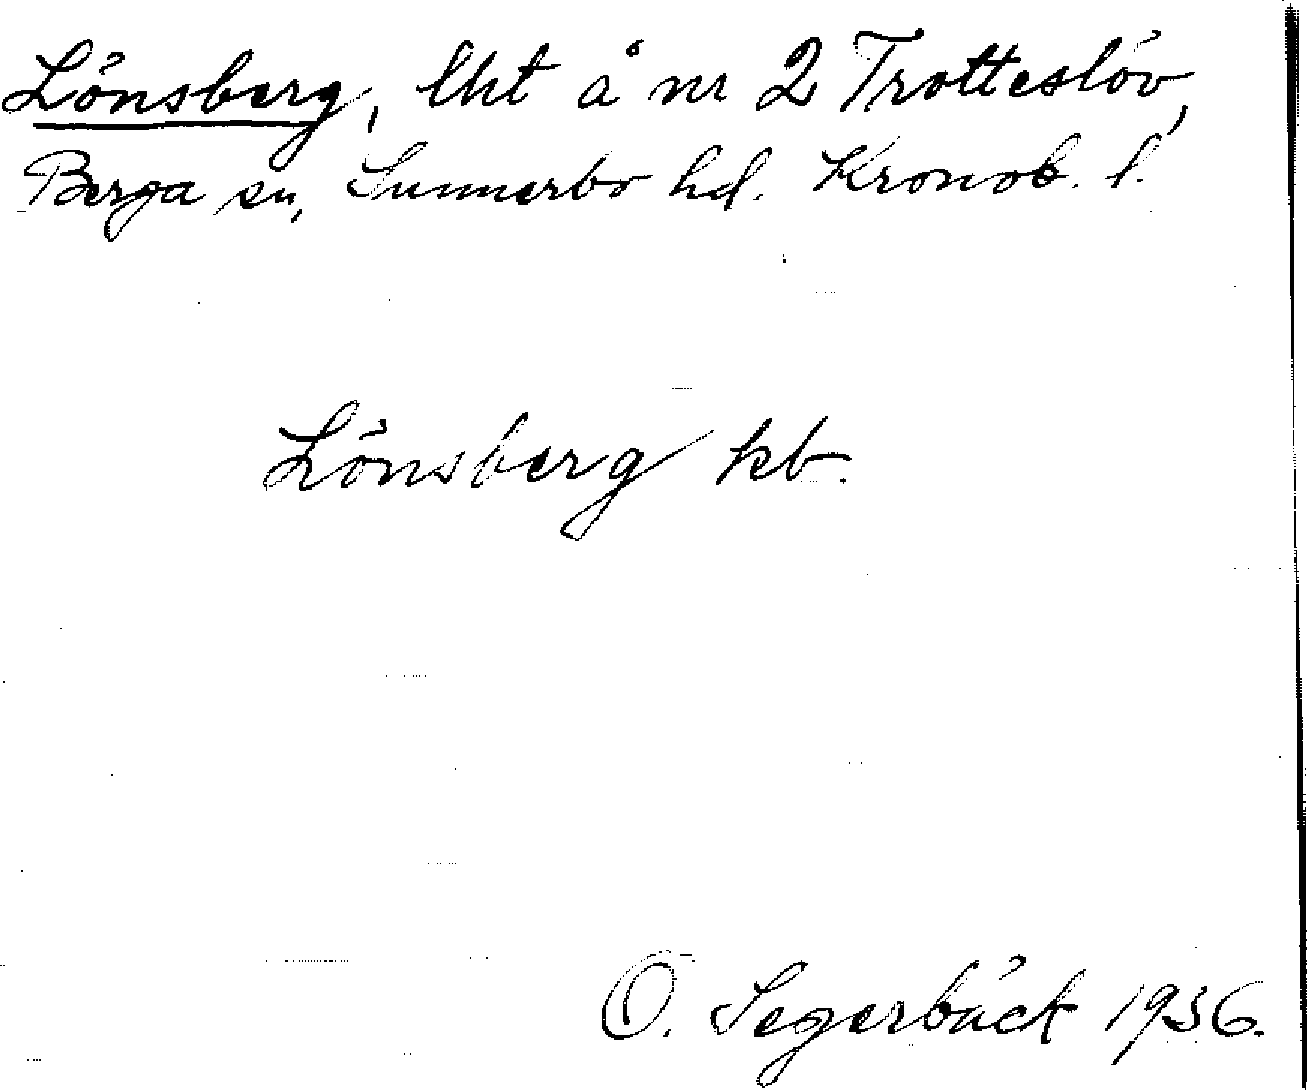 Lönsberg, lht å nr 2 Trotteslöv,
Berga sn, Sunnerbo hd. Kronob. l.
Lönsberg kb.
O. Segerbäck 1936.